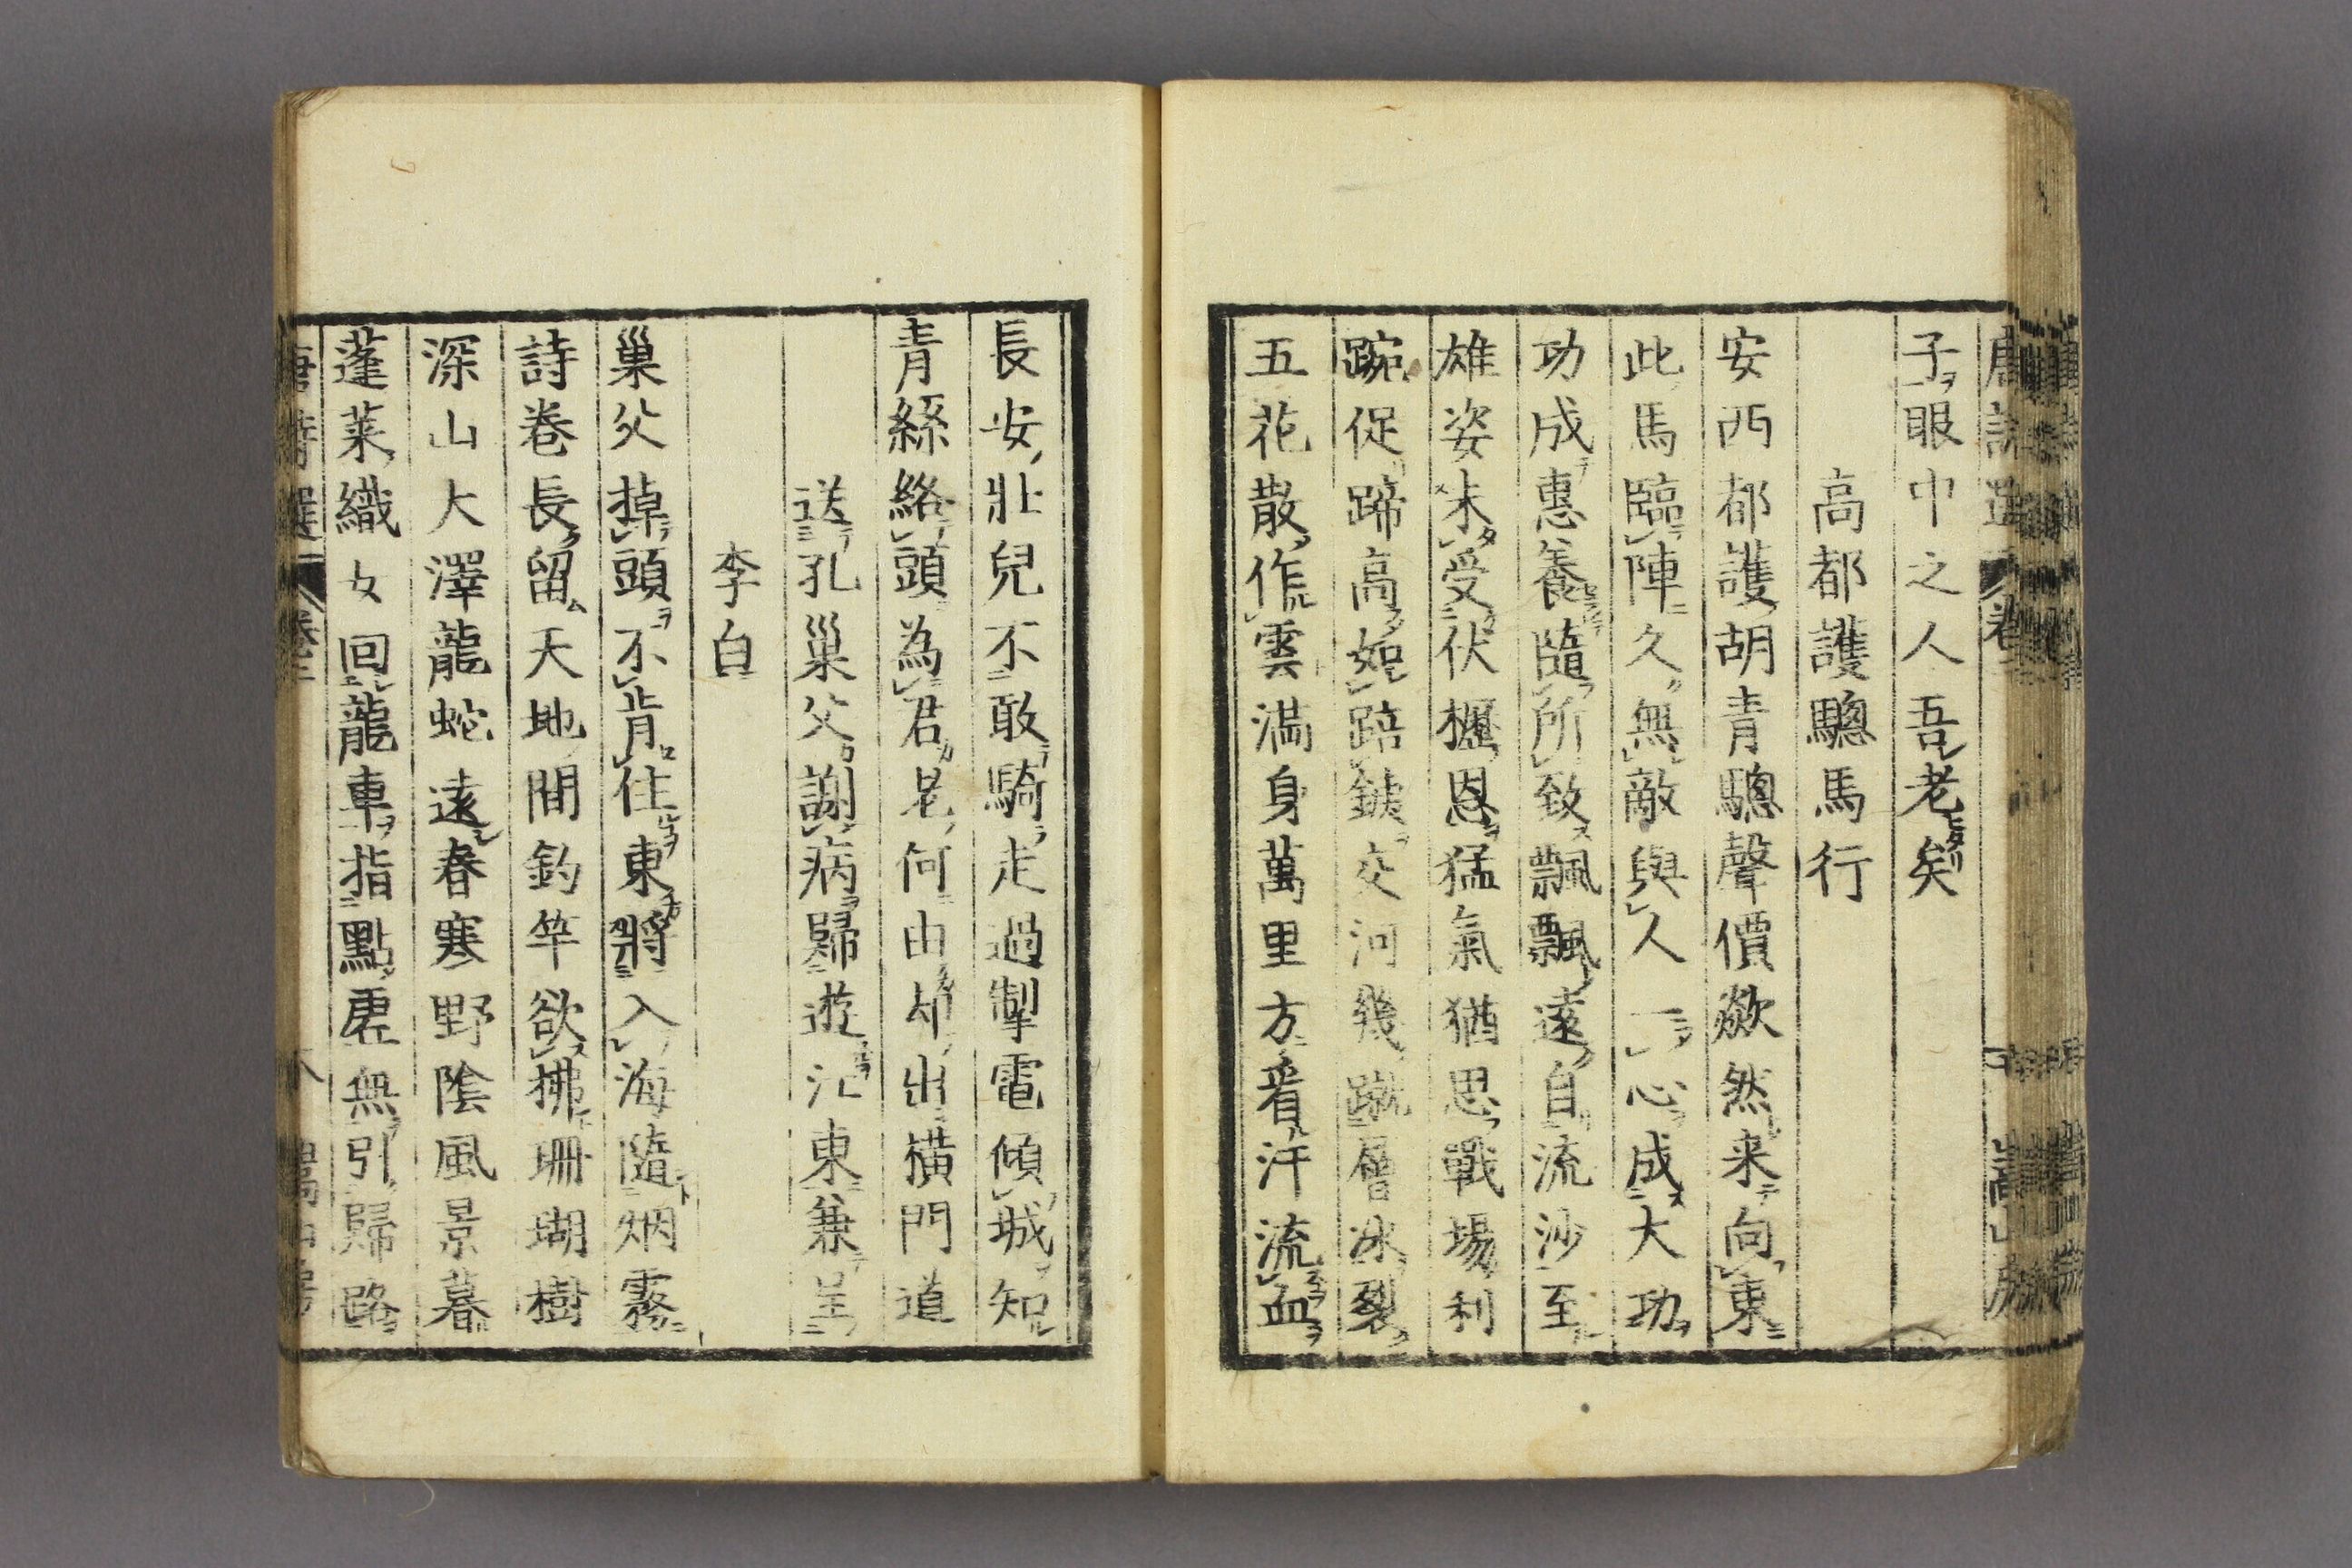 子眼中之人吾老矣
高都護驄馬行
安西都護胡青驄聲價欻然来向東
此馬臨陣久無敵與人一心成大功
功成惠養隨所致飄飄遠自流沙至
雄姿未受伏櫪恩猛氣猶思戰場利
踠促蹄高如踣鐵交河幾蹴層冰裂
五花散作雲滿身萬里方看汗流血
長安壯兒不敢騎走過掣電傾城知
青絲絡頭為君老何由却出橫門道
送孔巢父謝病歸遊江東兼呈
李白
巢父掉頭不肯住東將入海隨烟霧
詩卷長留天地間釣竿欲拂珊瑚樹
深山大澤龍蛇遠春寒野陰風景暮
蓬莱織女回龍車指點虚無引歸路
唐詩選 卷二